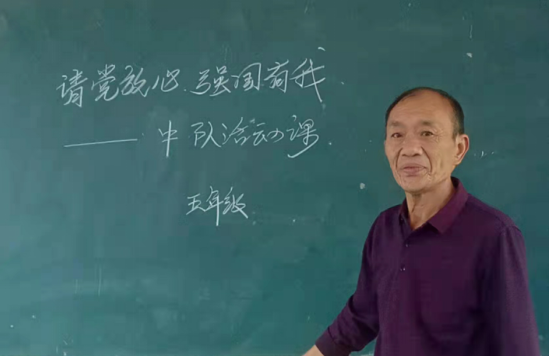 请党放心、强国有我
——中队活动课
五年级